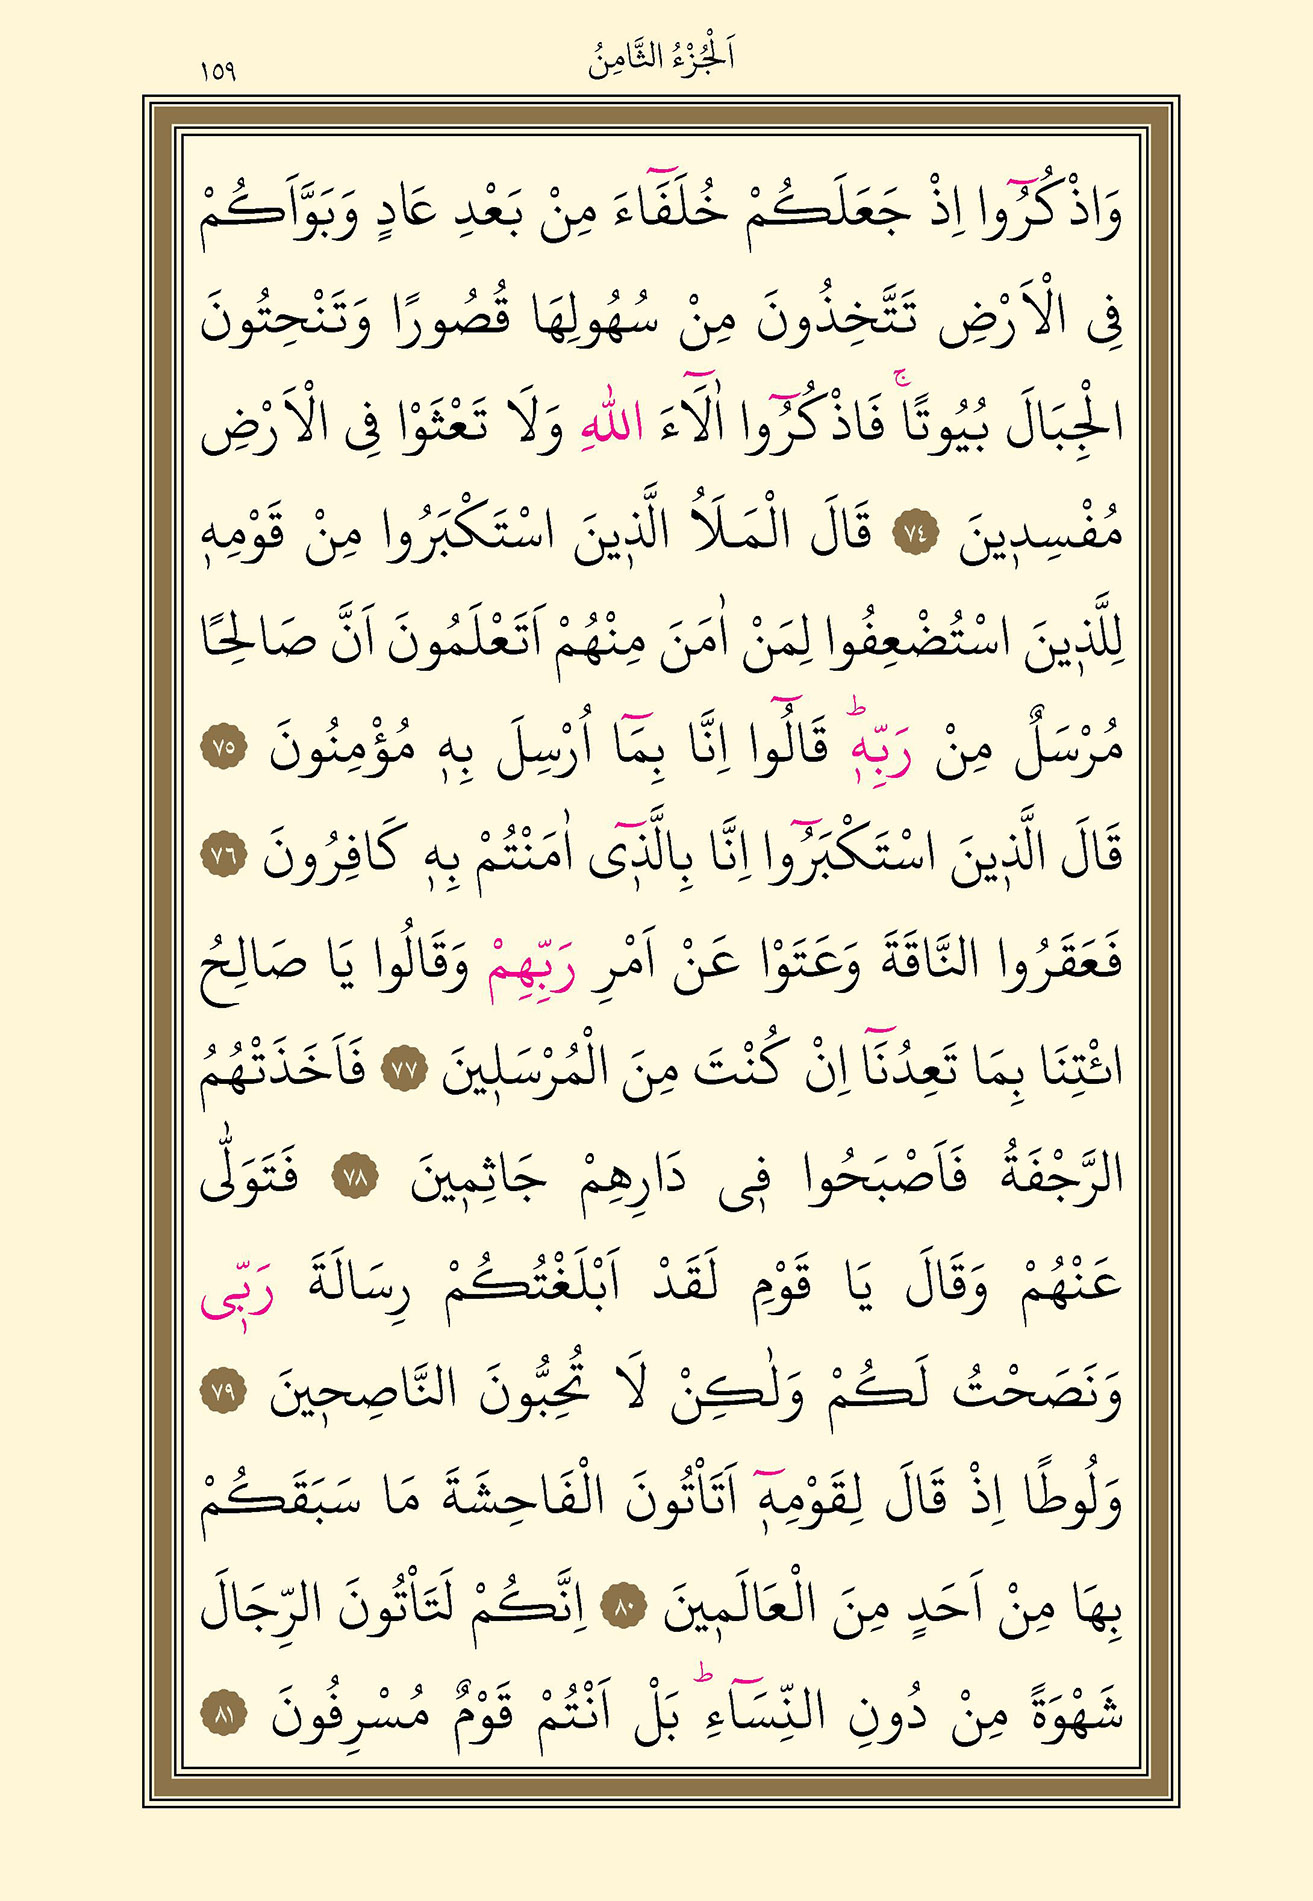 اَلْجُزْءُ الثَّامِنُ
١٥٩
وَاذْكُرُٓوا اِذْ جَعَلَكُمْ خُلَفَٓاءَ مِنْ بَعْدِ عَادٍ وَبَوَّاَكُمْ
فِى الْاَرْضِ تَتَّخِذُونَ مِنْ سُهُولِهَا قُصُورًا وَتَنْحِتُونَ
الْجِبَالَ بُيُوتًاۚ فَاذْكُرُٓوا اٰلَٓاءَ اللّٰهِ وَلَا تَعْثَوْا فِى الْاَرْضِ
مُفْسِدٖينَ ﴿٧٤﴾ قَالَ الْمَلَاُ الَّذٖينَ اسْتَكْبَرُوا مِنْ قَوْمِهٖ
لِلَّذٖينَ اسْتُضْعِفُوا لِمَنْ اٰمَنَ مِنْهُمْ اَتَعْلَمُونَ اَنَّ صَالِحًا
مُرْسَلٌ مِنْ رَبِّهٖؕ قَالُٓوا اِنَّا بِمَٓا اُرْسِلَ بِهٖ مُؤْمِنُونَ ﴿٧٥﴾
قَالَ الَّذٖينَ اسْتَكْبَرُٓوا اِنَّا بِالَّذٖٓى اٰمَنْتُمْ بِهٖ كَافِرُونَ ﴿٧٦﴾
فَعَقَرُوا النَّاقَةَ وَعَتَوْا عَنْ اَمْرِ رَبِّهِمْ وَقَالُوا يَا صَالِحُ
ائْتِنَا بِمَا تَعِدُنَٓا اِنْ كُنْتَ مِنَ الْمُرْسَلٖينَ ﴿٧٧﴾ فَاَخَذَتْهُمُ
الرَّجْفَةُ فَاَصْبَحُوا فٖى دَارِهِمْ جَاثِمٖينَ ﴿٧٨﴾ فَتَوَلّٰى
عَنْهُمْ وَقَالَ يَا قَوْمِ لَقَدْ اَبْلَغْتُكُمْ رِسَالَةَ رَبّٖى
وَنَصَحْتُ لَكُمْ وَلٰكِنْ لَا تُحِبُّونَ النَّاصِحٖينَ ﴿٧٩﴾
وَلُوطًا اِذْ قَالَ لِقَوْمِهٖٓ اَتَاْتُونَ الْفَاحِشَةَ مَا سَبَقَكُمْ
بِهَا مِنْ اَحَدٍ مِنَ الْعَالَمٖينَ ﴿٨٠﴾ اِنَّكُمْ لَتَاْتُونَ الرِّجَالَ
شَهْوَةً مِنْ دُونِ النِّسَٓاءِؕ بَلْ اَنْتُمْ قَوْمٌ مُسْرِفُونَ ﴿٨١﴾